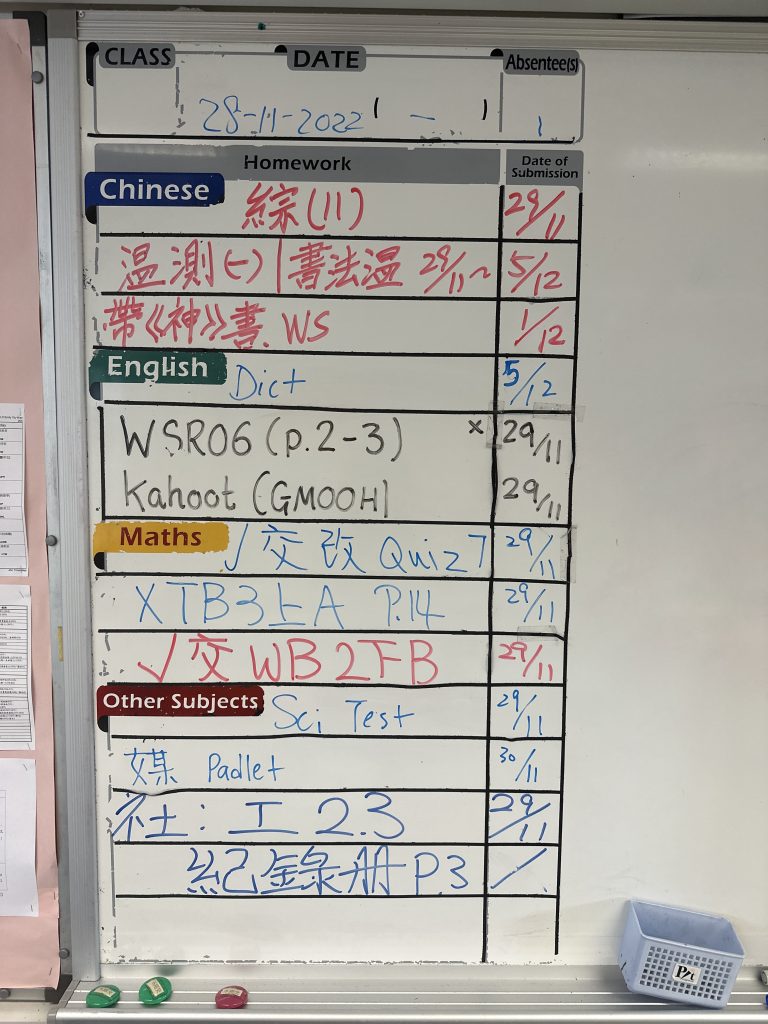 CLASS DATE Absentee(s)
28-11-2022 (一) 1
Homework Date of Submission
Chinese 綜(11) 29/11
温測(一) | 書法温 29/11~ 5/12
帶《神》書.WS 1/12
English Dict 5/12
WSR06 (p.2-3) x 29/11
Kahoot (GMOOH) 29/11
Maths √交改 Quiz 7 29/11
XTB3上A P.14 29/11
√交 WB2下B 29/11
Other Subjects Sci Test 29/11
媒 Padlet 30/11
社:工 2.3 29/11
紀錄册 P.3 /